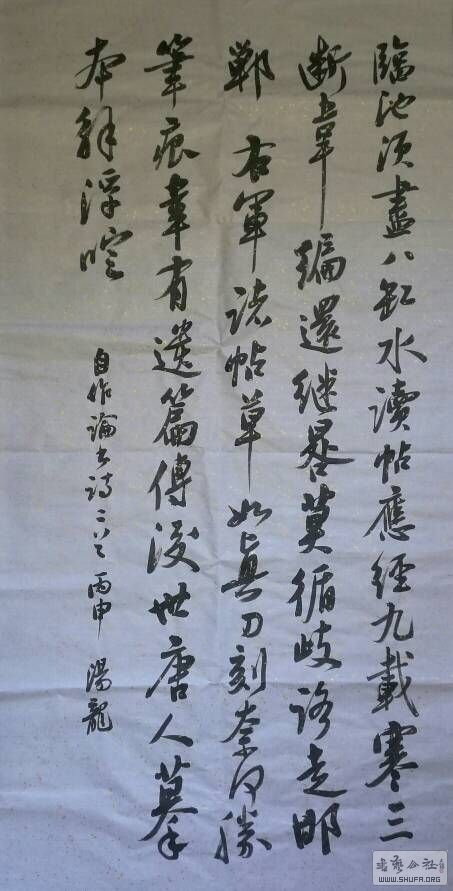 臨池須盡八缸水讀帖應經九載寒三
斷韋編還繼晷莫循歧路走邯
鄲 右軍诸帖草如真刀刻奈何勝
筆痕幸有遺篇傳後世唐人摹
本解浮喧
自作論书詩二首 丙申 湯龍
书艺公社
WWW.SHUFA.ORG